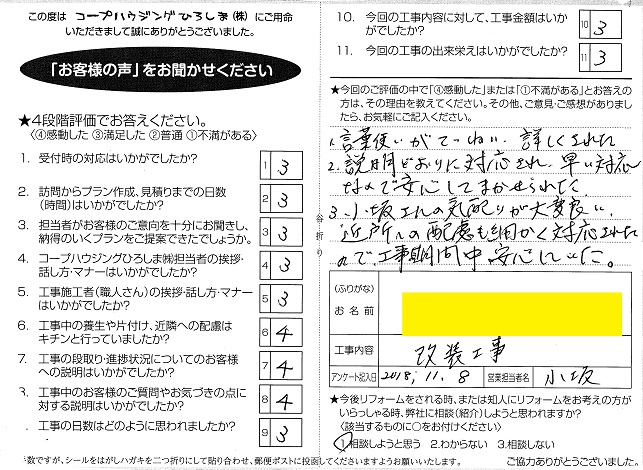 この度は コープハウジングひろしま(株) にご用命
いただきまして誠にありがとうございました。
「お客様の声」をお聞かせください
★4段階評価でお答えください。
〈④感動した ③満足した ②普通 ①不満がある〉
1. 受付時の対応はいかがでしたか?
1 3
2. 訪問からプラン作成、見積りまでの日数
(時間)はいかがでしたか?
2 3
3. 担当者がお客様のご意向を十分にお聞きし、
納得のいくプランをご提案できたでしょうか。
3 3
4. コープハウジングひろしま㈱担当者の挨拶・
話し方・マナーはいかがでしたか?
4 3
5. 工事施工者(職人さん)の挨拶・話し方・マナー
はいかがでしたか?
5 3
6. 工事中の養生や片付け、近隣への配慮は
キチンと行っていましたか?
6 4
7. 工事の段取り・進捗状況についてのお客様
への説明はいかがでしたか?
7 4
8. 工事中のお客様のご質問やお気づきの点に
対する説明はいかがでしたか?
8 4
9. 工事の日数はどのように思われましたか?
9 3
谷折り
10. 今回の工事内容に対して、工事金額はいか
がでしたか?
10 3
11. 今回の工事の出来栄えはいかがでしたか?
11 3
★今回のご評価の中で「④感動した」または「①不満がある」とお答え
の方は、その理由を教えてください。その他、ご意見・ご感想がありまし
たら、お気軽にご記入ください。
1. 言葉使いがていねい、詳しくされた
2. 説明どおりに対応され、早い対応
なので安心してまかせられた
3. 小坂さんの気配りが大変良い、
近所への配慮も細かく対応された
ので、工事期間中安心していた。
(ふりがな)
お名前
工事内容 改装工事
アンケート記入日 2018, 11. 8 営業担当者名 小坂
★今後リフォームをされる時、または知人にリフォームをお考えの方が
いらっしゃる時、弊社に相談(紹介)しようと思われますか?
(該当するものに○をお付けください)
1.相談しようと思う 2.わからない 3.相談しない
数ですが、シールをはがしハガキを二つ折りにして貼り合わせ、郵便ポストに投函してくださいますようお願いいたします。
ご協力ありがとうございました。